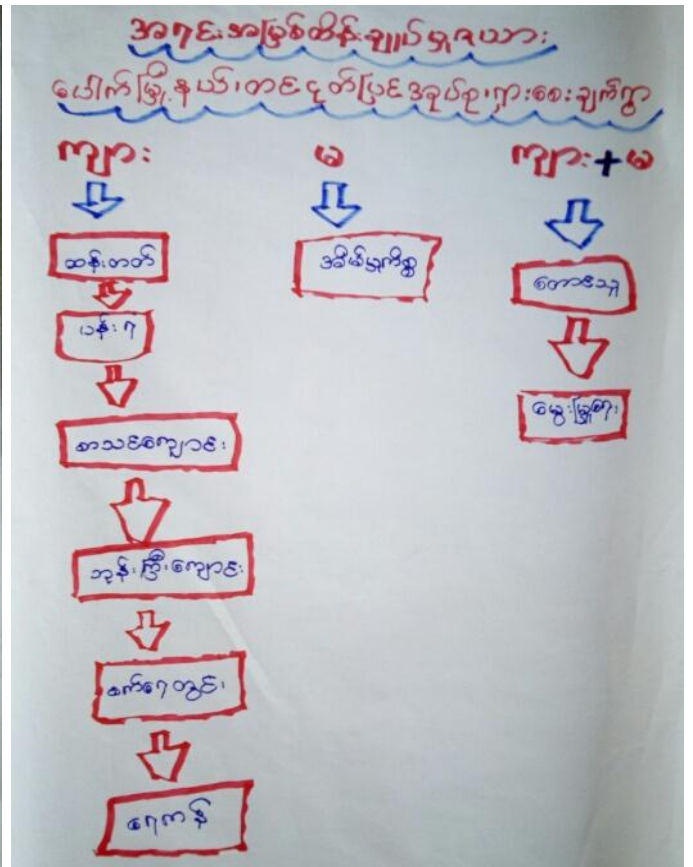 အရင်းအမြစ်ထိန်းချုပ်မှုဇယား
ပေါက်မြို့နယ်၊တင်ငုတ်ပြင်အုပ်စု၊ရှားစေးချက်ရွာ
ကျား
မ
ကျား+မ
ဆန်းတတ်
ပန်းရံ
စာသင်ကျောင်း
ဘုန်းကြီးကျောင်း
စက်ရေတွင်း
ရေကန်
အိမ်မှုကိစ္စ
တောင်သူ
မွေးမြူရေး